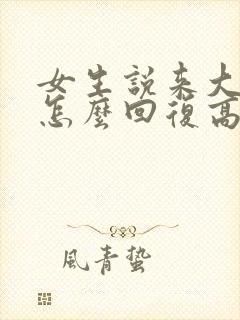 女生說来大
怎麼回復高
風青蟄